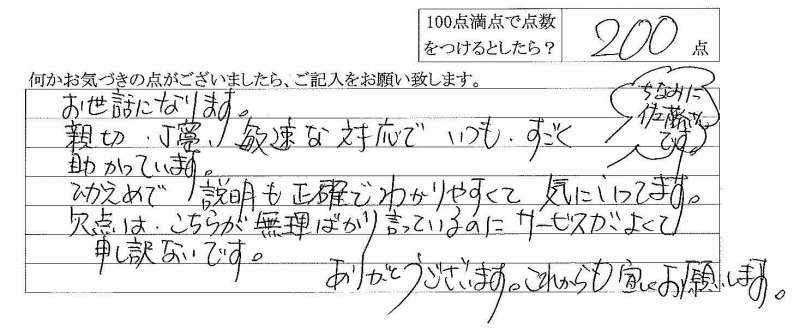 100点満点で点数
をつけるとしたら？
200 点
何かお気づきの点がございましたら、ご記入をお願い致します。
ちなみに
佐藤さん
です。
お世話になります。
親切・丁寧・敏速な対応で いつも・すごく
助かっています。
ひかえめで 説明も正確でわかりやすくて 気にいってます。
欠点は・こちらが無理ばかり言っているのにサービスがよくて
申し訳ないです。
ありがとうございます。これからも宜しくお願いします。